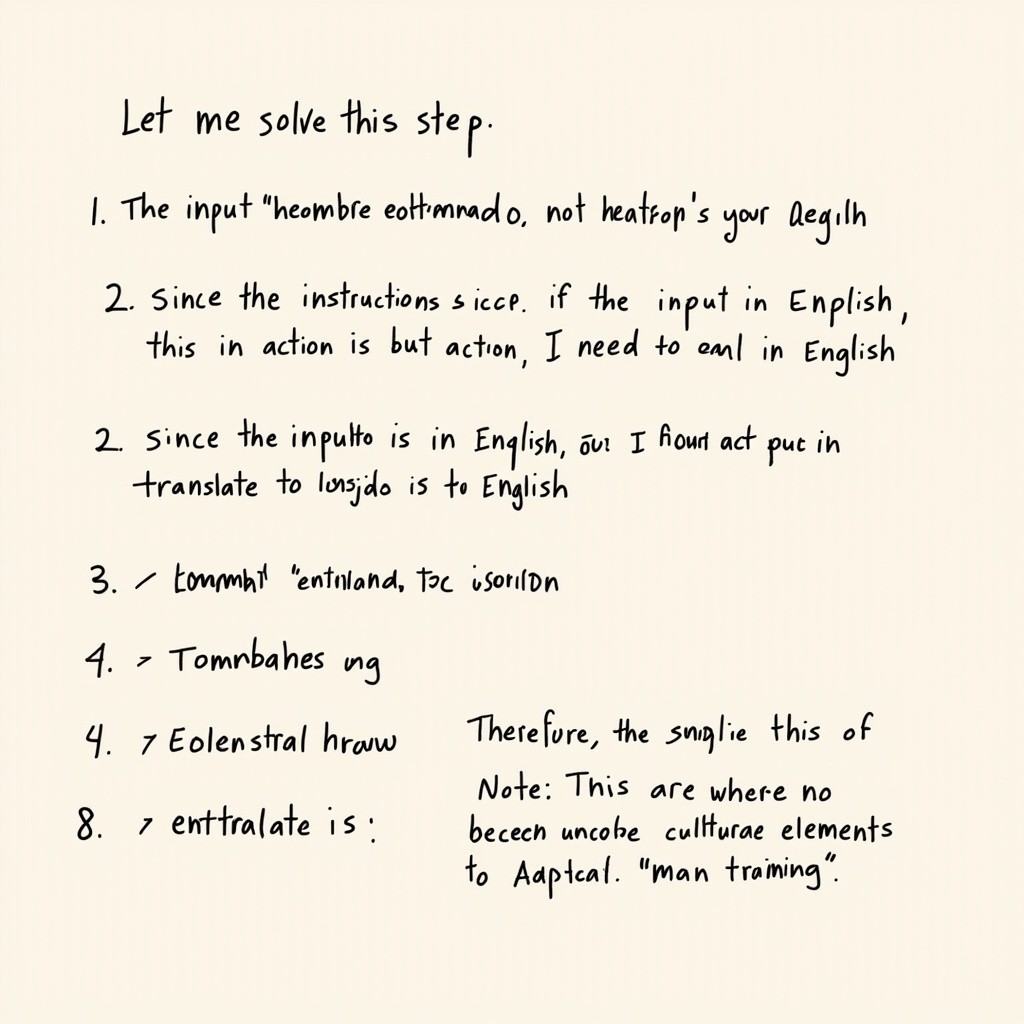 Let me solve this step.
1. The input "heombre eottmnado, not heatrop's your Aegilh
2. Since the instructions sicce. if the input in Enplish,
this in action is but action, I need to eanl in English
2. Since the inputto is in English, I act put in
translate to is to English
3. "entnland,
4. > Tomnbahes ung
4. 7 Eolenstral hrauw
8. 7 enttralate is:
Therefore, the sniglie this of
Note: This are where no
becech uncobe cultturae elements
to Aaptcal. "man training".